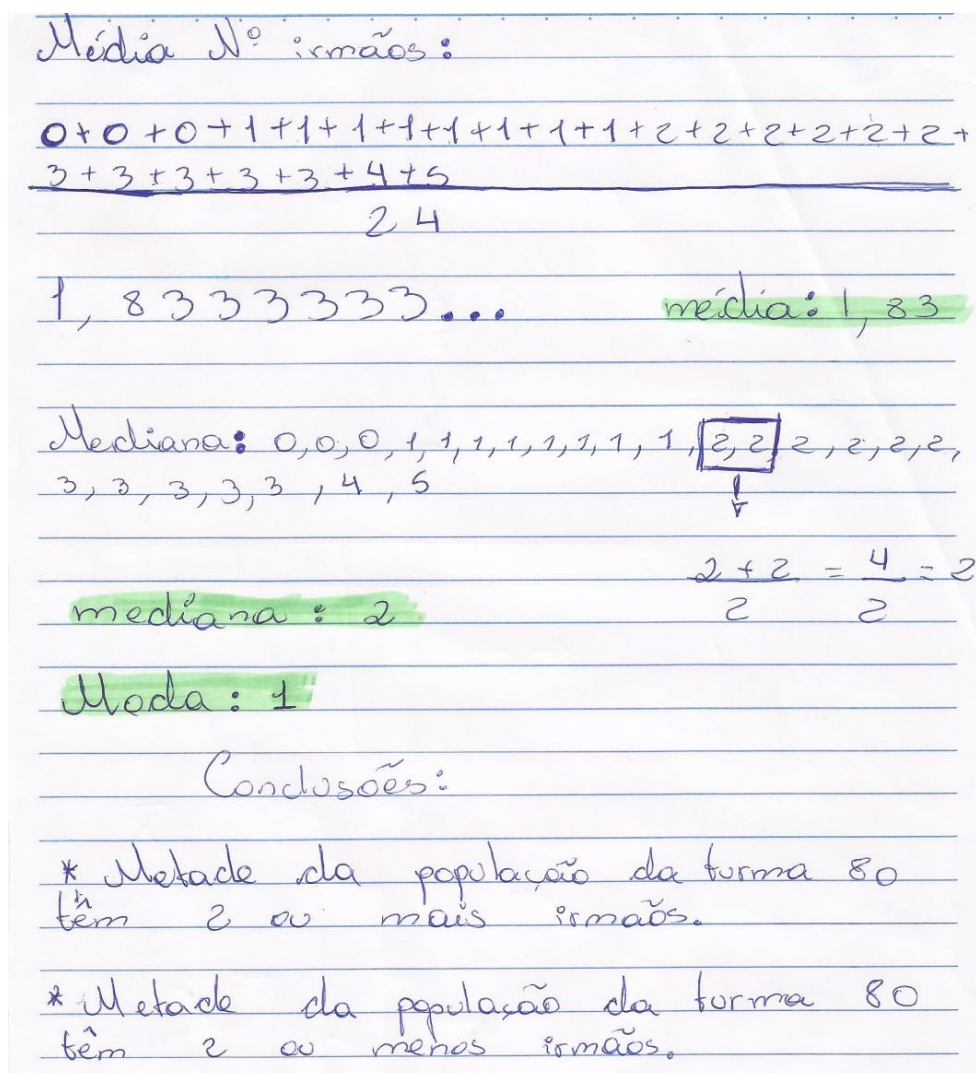 Média Nº irmãos:
0+0+0+1+1+1+1+1+1+1+1+2+2+2+2+2+2+
3+3+3+3+3+4+5
24
1,8333333... média: 1,83
Mediana: 0,0,0,1,1,1,1,1,1,1,1,2,2,2,2,2,2,
3,3,3,3,3,4,5
2+2 = 4 = 2
2 2
mediana: 2
Moda: 1
Conclusões:
* Metade da população da turma 80
têm 2 ou mais irmãos.
* Metade da população da turma 80
têm 2 ou menos irmãos.